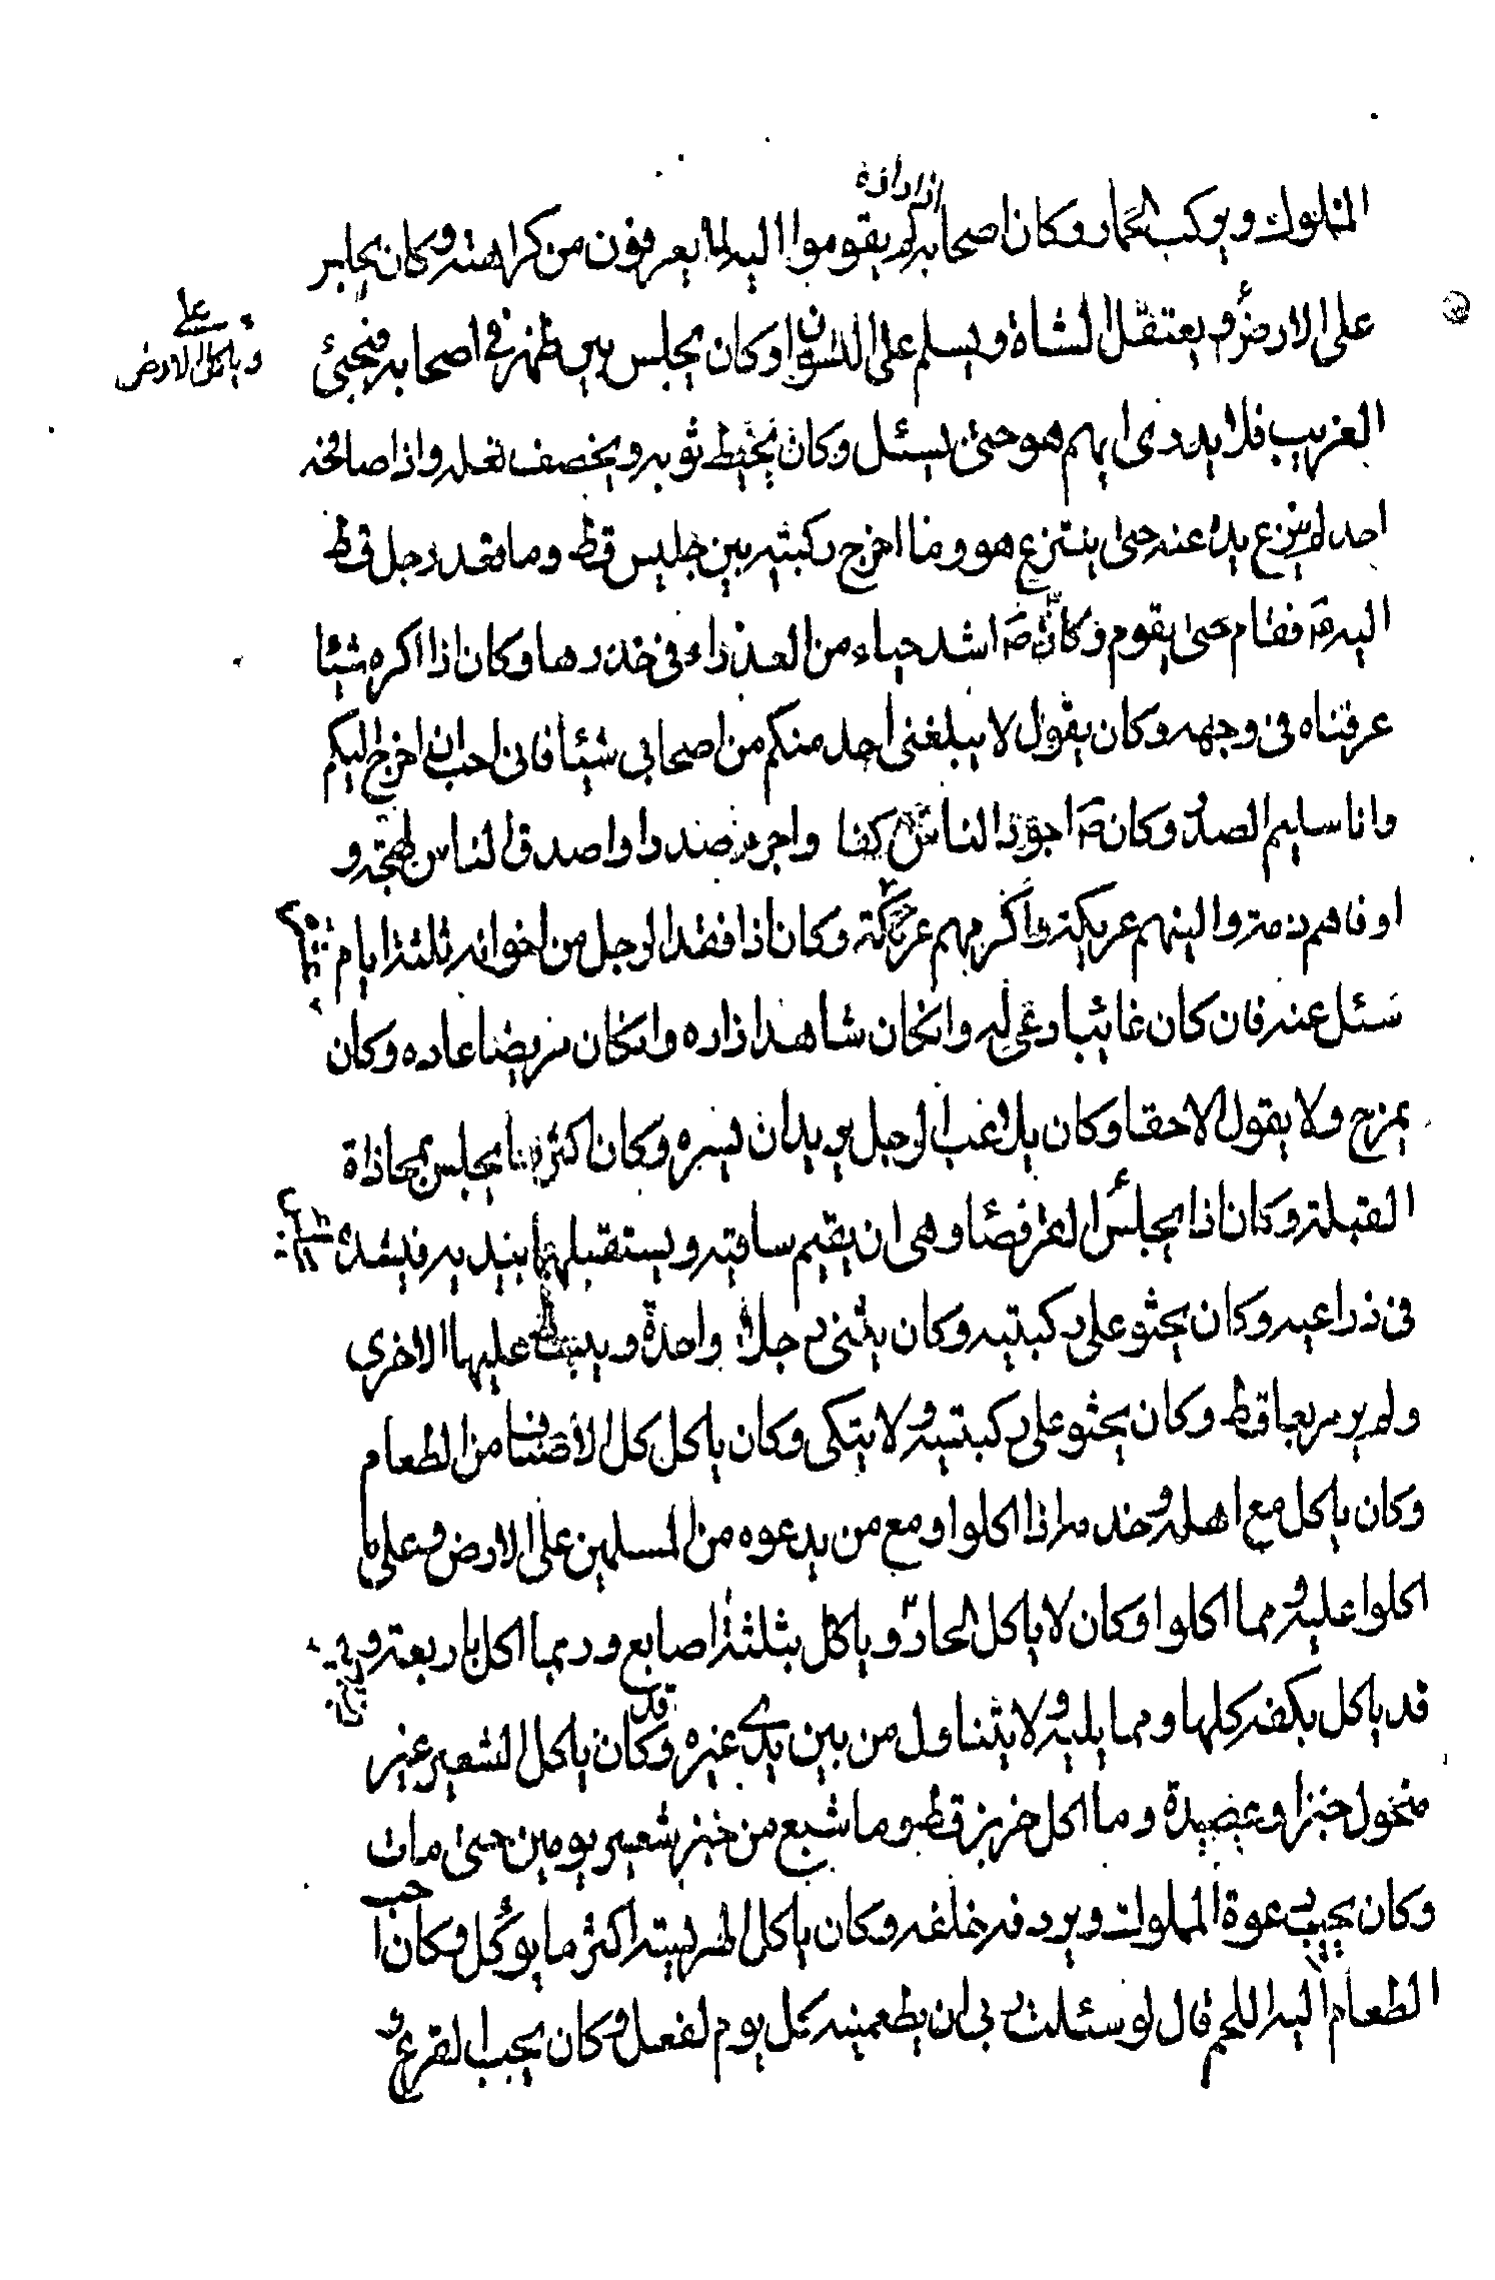 المملوك ويركب الحمار وكان اصحابه اذا راوه لم يقوموا اليه لما يعرفون من كراهته وكان يجلس
على الارض ويعتقل الشاة ويسلم على النسوان وكان يجلس بين ظهرني اصحابه فيجيئ
وياكل على الارض
الغريب فلا يدرى ايهم هو حتى يسئل وكان يخيط ثوبه ويخصف نعله واذا صافحه
احد لم ينزع يده عنه حتى ينتزع هو وما اخرج ركبتيه بين جليس قط وما قعد رجل قط
اليه ص فقام حتى يقوم وكان ص اشد حياء من العذراء في خدرها وكان اذا اكره شيئا
عرفناه في وجهه وكان يقول لا يبلغنى احد منكم من اصحابي شيئا فانى احب ان اخرج اليكم
وانا سليم الصدر وكان ص اجود الناس كفا واجرء صدرا واصدق الناس لهجة و
اوفاهم ذمة والينهم عريكة واكرمهم عريكة وكان اذا فقد الرجل من اخوانه ثلثة ايام
سئل عنه فان كان غائبا دعى له وانكان شاهدا زاره وانكان مريضا عاده وكان
يمزح ولا يقول الا حقا وكان يلاعب الرجل يريد ان يسره وكان اكثر ما يجلس بمحاذاة
القبلة وكان اذا يجلس القرفصا وهى ان يقيم ساقيه ويستقبلهما بيديه فيشد يده
في ذراعيه وكان يجثو على ركبتيه وكان يثنى رجلا واحدة ويبسط عليها الاخرى
ولم ير مربعا قط وكان يجثو على ركبتيه ولا يتكى وكان ياكل كل الاصناف من الطعام
وكان ياكل مع اهله وخدمه اذا اكلوا ومع من يدعوه من المسلمين على الارض وعلى ما
اكلوا عليه ومما اكلوا وكان لا ياكل الحار وياكل بثلثة اصابع وربما اكل باربعة و
قد ياكل بكفه كلها ومما يليه ولا يتناول من بين يدي غيره وقد كان ياكل الشعير غير
منخول خبزا وعصيدة وما اكل خبز بر قط وما شبع من خبز شعير يومين حتى مات
وكان يجيب دعوة المملوك ويردفه خلفه وكان ياكل الهريسة اكثر ما يوكل وكان احب
الطعام اليه اللحم قال لو سئلت ربى ان يطعمنيه كل يوم لفعل وكان يحب القرع و